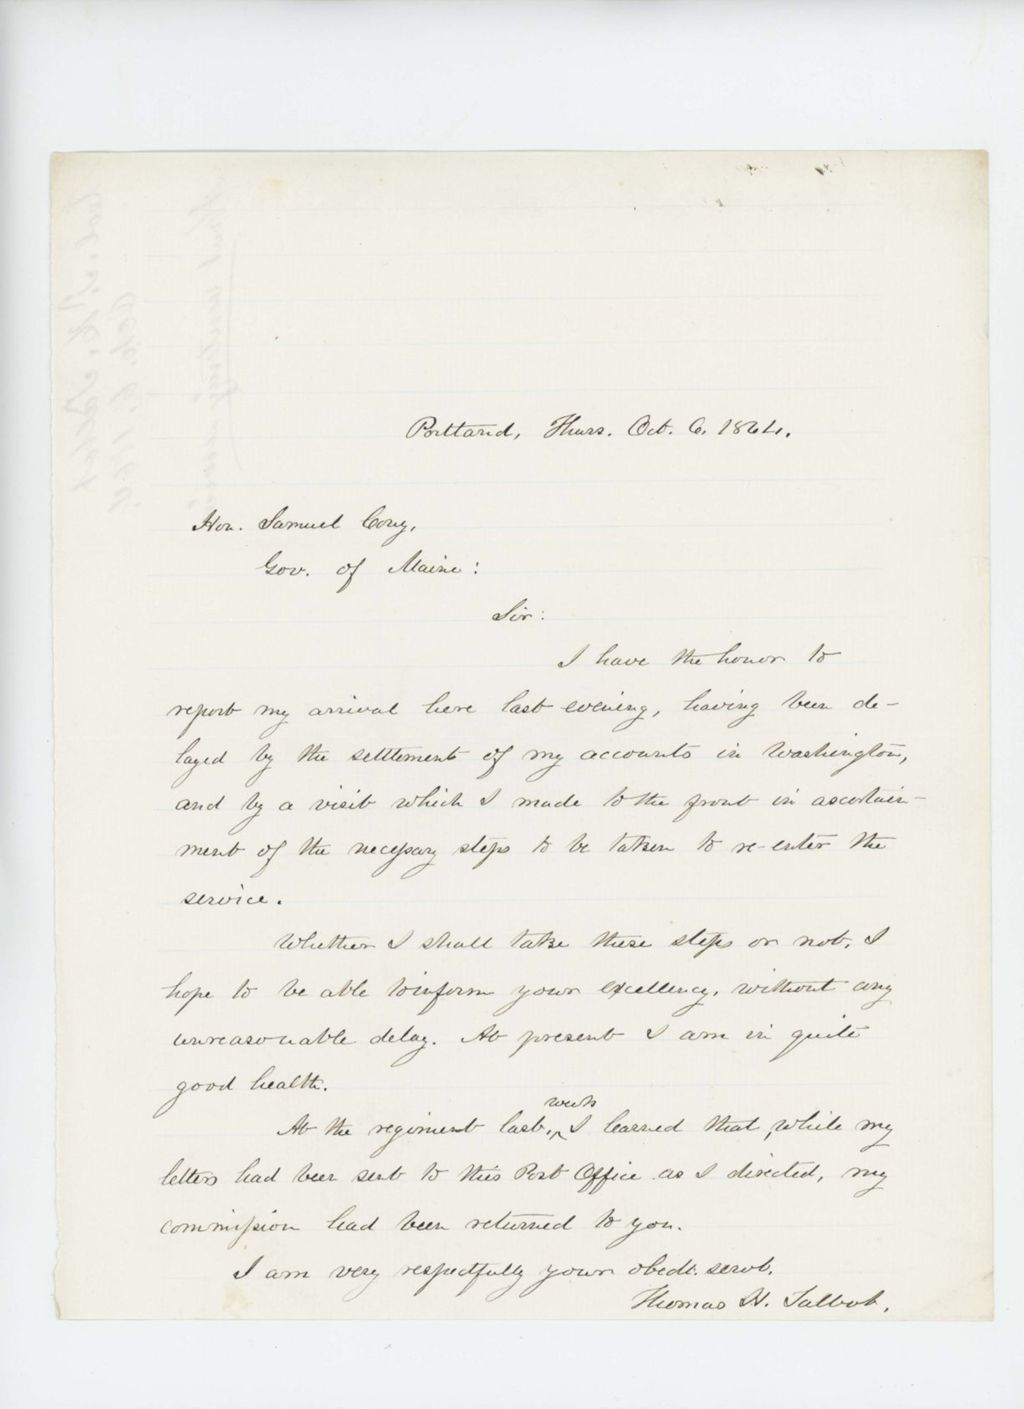 Portland, Thurs. Oct. 6, 1864.
Hon. Samuel Cony,
Gov. of Maine:
Sir:
I have the honor to
report my arrival here last evening, having been de-
layed by the settlement of my accounts in Washington,
and by a visit which I made to the front in ascertain-
ment of the necessary steps to be taken to re-enter the
service.
Whether I shall take these steps or not, I
hope to be able to inform your excellency, without any
unreasonable delay. At present I am in quite
good health.
week
At the regiment last, ^ I learned that, while my
letters had been sent to this Post Office as I directed, my
commission had been returned to you.
I am very respectfully your obedt. servt.
Thomas H. Talbot.